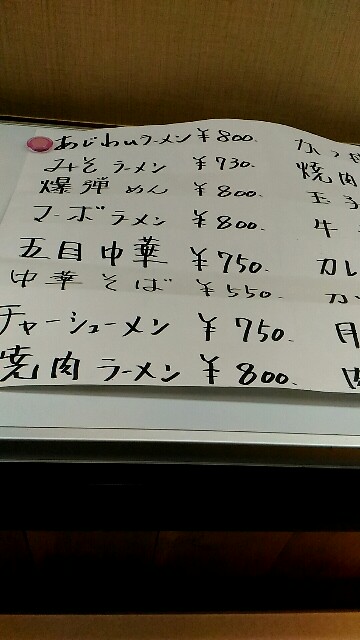 あじわいラーメン ¥800.
みそラーメン ¥730.
爆弾めん ¥800.
マーボラーメン ¥800.
五目中華 ¥750.
中華そば ¥550.
チャーシューメン ¥750.
焼肉ラーメン ¥800.
かつ
焼肉
玉子
牛
カレ
カ
月
肉